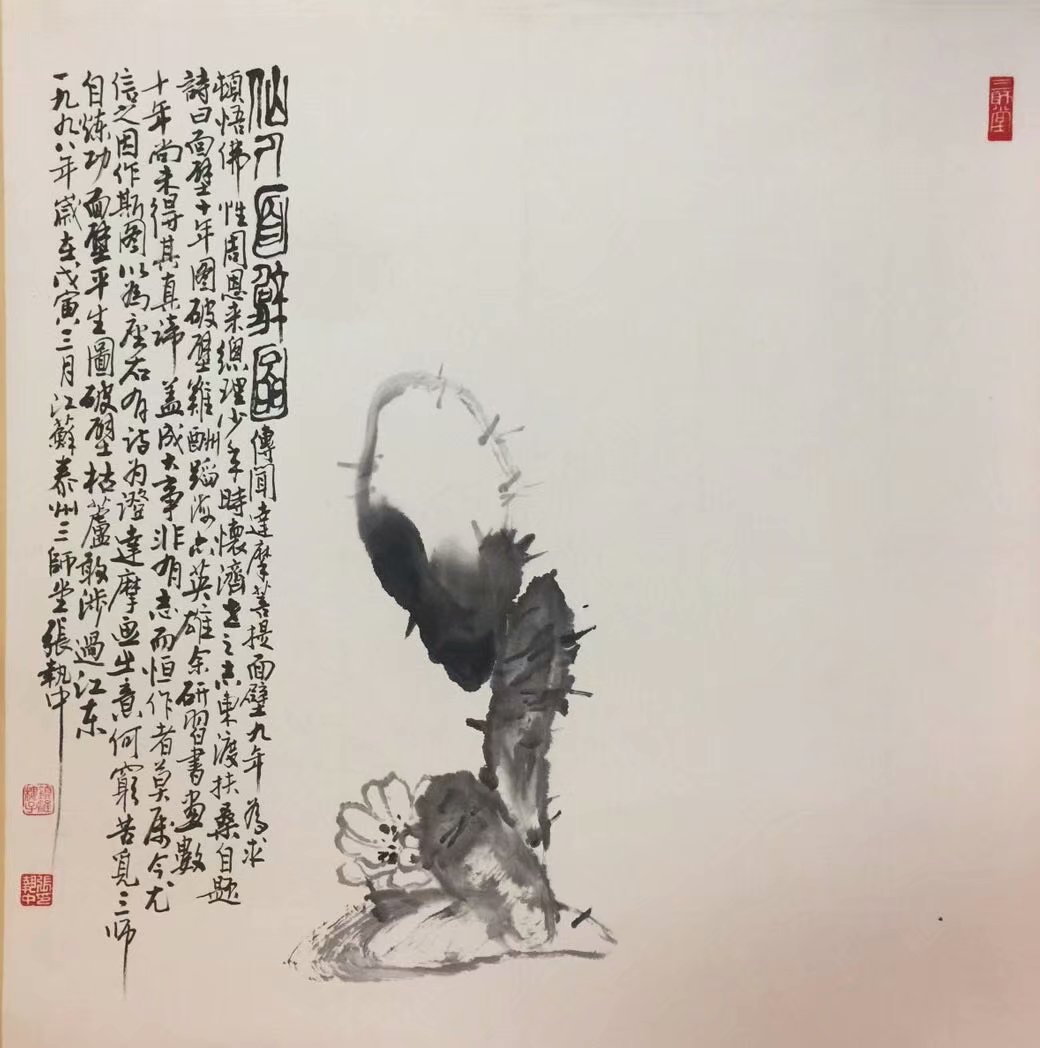 三師堂
仙人面壁圖傳聞達摩菩提面壁九年為求
頓悟佛性周恩来總理少年時懷濟世之志東渡扶桑自題
詩曰面壁十年图破壁難酬蹈海亦英雄余研習書画數
十年尚未得其真諦盖成大事非有志而恒作者莫属今尤
信之因作斯图以為座右有诗为證達摩画出意何窮苦覓三师
自炼功面壁平生圖破壁枯蘆敢渉過江东
一九九八年歲在戊寅三月江蘇泰州三師堂張執中
張執中